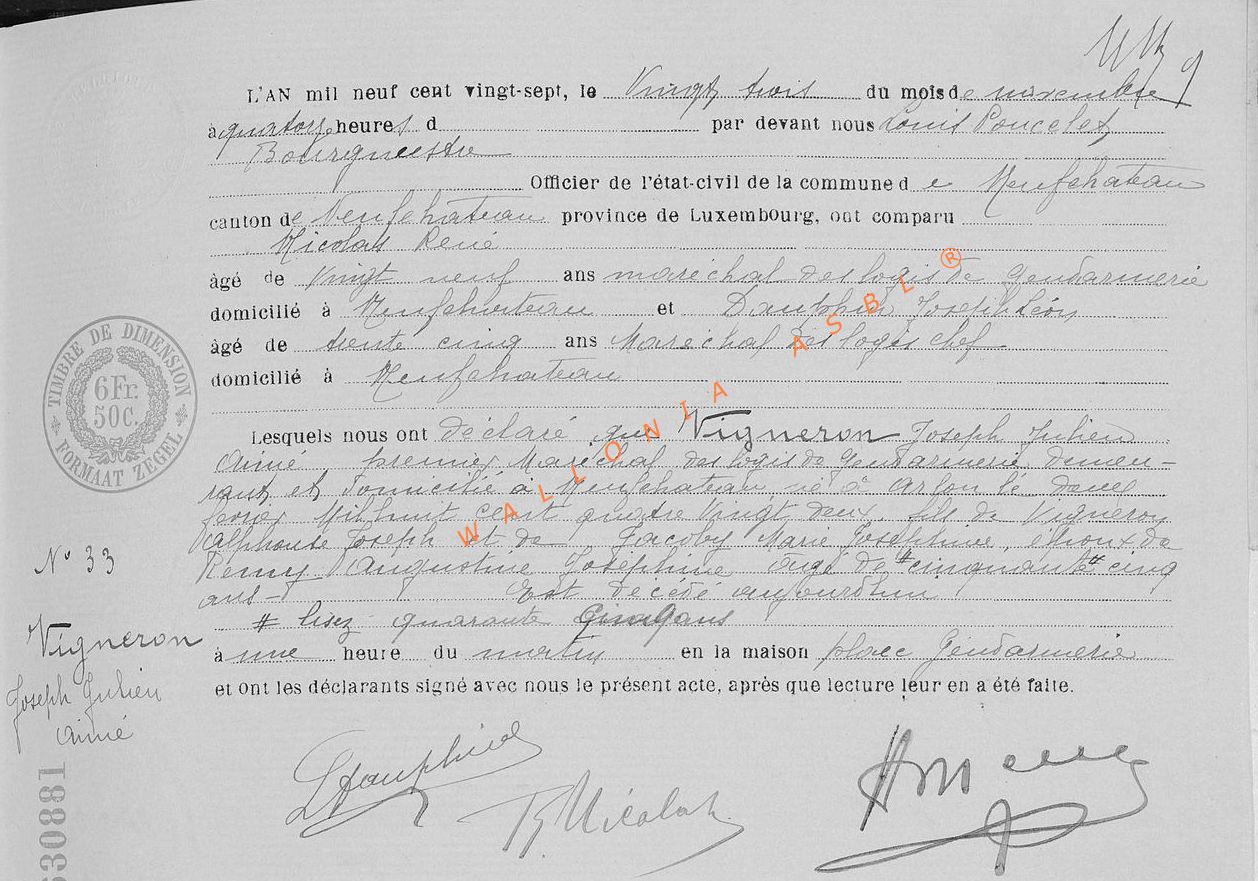 L'AN mil neuf cent vingt-sept, le Vingt trois du mois de novembre
à quatorze heures d par devant nous Louis Poncelet,
Bourgmestre
Officier de l'état-civil de la commune de Neufchateau
canton de Neufchateau province de Luxembourg, ont comparu
Nicolas René
âgé de Vingt neuf ans maréchal des logis de Gendarmerie
domicilié à Neufchateau et Dauphin Joseph Léon
âgé de trente cinq ans Maréchal des logis chef
domicilié à Neufchateau
Lesquels nous ont déclaré que Vigneron Joseph Julien
Aimé, premier Maréchal des logis de Gendarmerie demeu-
rant et domicilié à Neufchateau, né à Arlon le deux
fevrier Mil huit cent quatre Vingt deux, fils de Vigneron
Alphonse Joseph et de Jacoby Marie Josephine, époux de
Rémy Augustine Josephine agé de # cinquante # cinq
ans - Est décédé aujourdhui
# lisez quarante cinq ans
à une heure du matin en la maison place Gendarmerie
et ont les déclarants signé avec nous le présent acte, après que lecture leur en a été faite.
TIMBRE DE DIMENSION
6Fr.
50C.
FORMAAT ZEGEL
N° 33
Vigneron
Joseph Julien
Aimé
630881
LDauphin
R Nicolas
WALLONIA ASBL ®